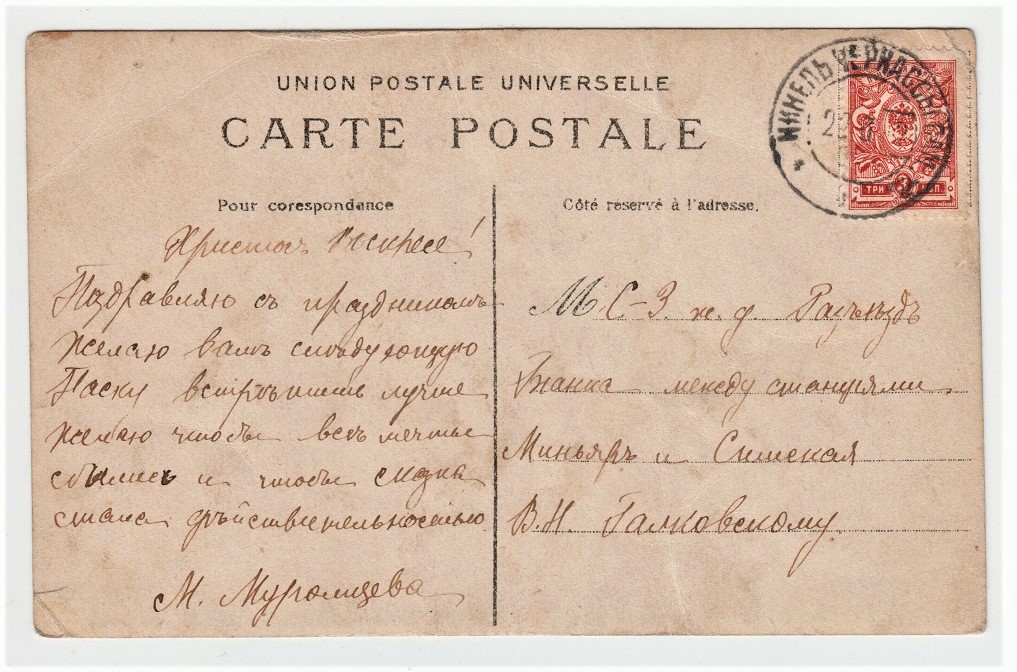 UNION POSTALE UNIVERSELLE
CARTE POSTALE
Pour corespondance
Côté réservé à l'adresse.
Христосъ Воскресе!
Поздравляю съ праздникомъ
желаю вамъ слѣдующую
Пасху встрѣтить лучше
желаю чтобы всѣ мечты
сбылись и чтобы сказка
стала дѣйствительностью
М. Муромцева
М. С-З. ж. д. Разъѣздъ
Бианка между станціями
Миньяръ и Симская
В. Н. Галковскому
КИНЕЛЬ-ЧЕРКАССЫ САМ.
ТРИ КОП
3